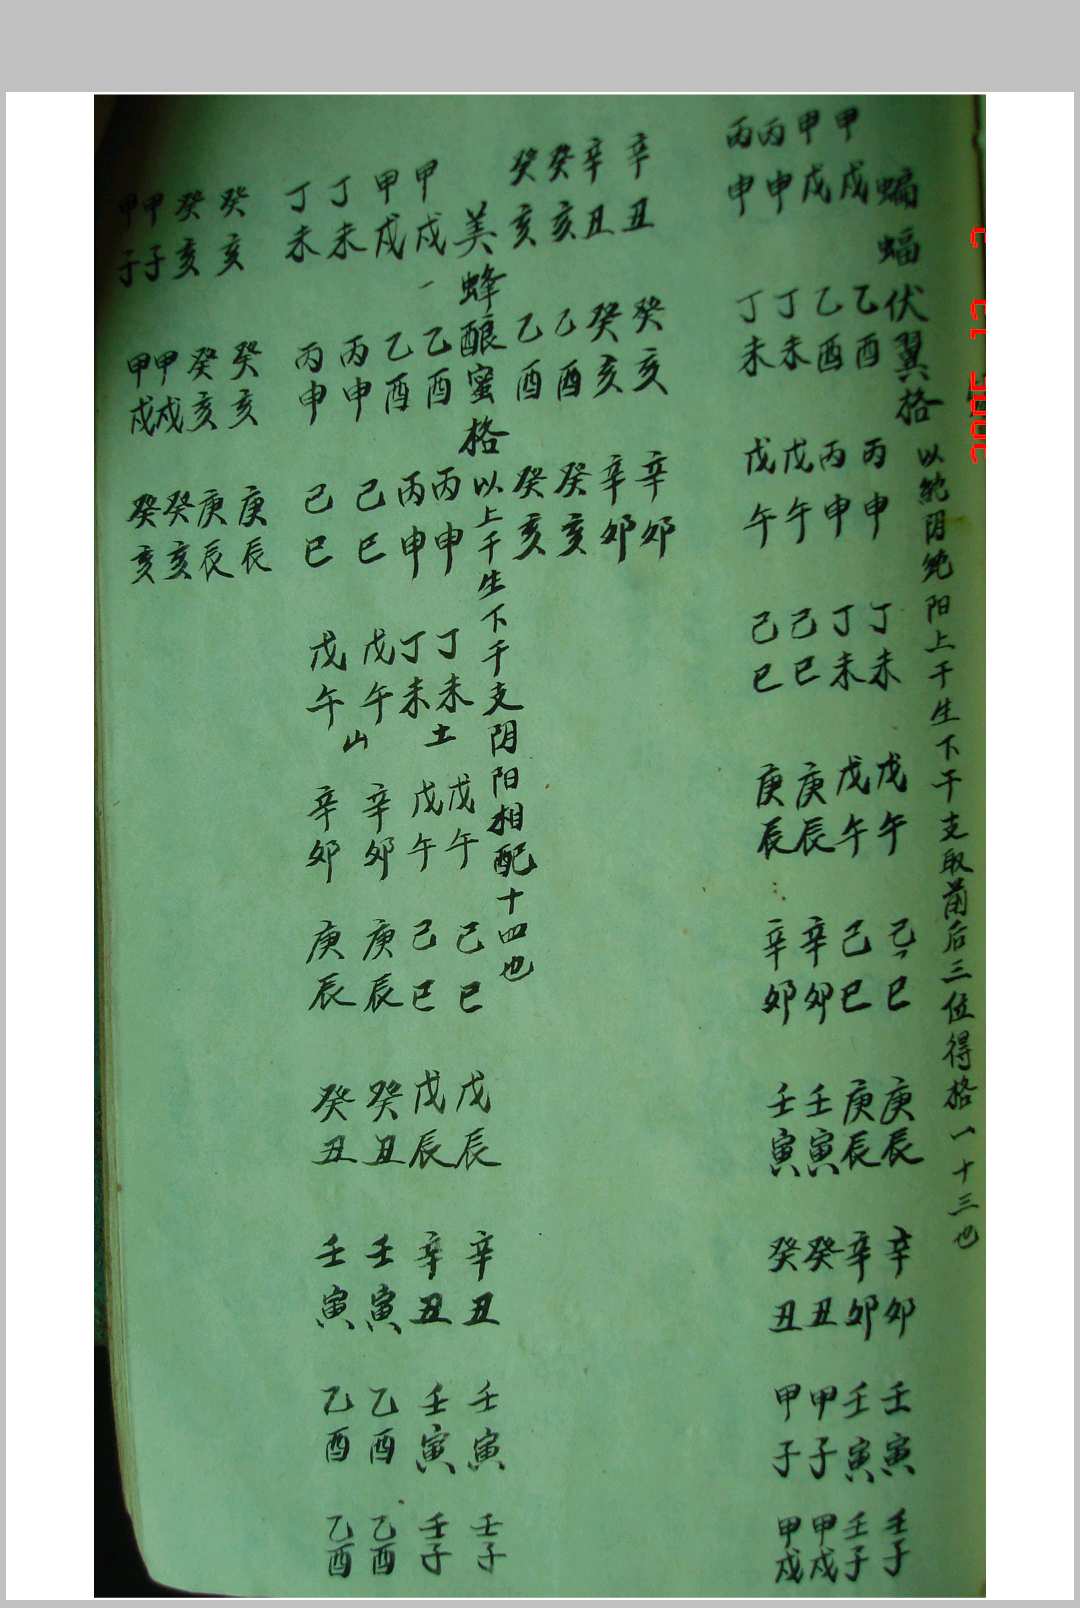 蝙蝠伏翼格 以纯阴纯阳上干生下干支取前后三位得格一十三也
甲戌 乙酉 丙申 丁未 戊午 己巳 庚辰 辛卯 壬寅 壬子
甲戌 乙酉 丙申 丁未 戊午 己巳 庚辰 辛卯 壬寅 壬子
丙申 丁未 戊午 己巳 庚辰 辛卯 壬寅 癸丑 甲子 甲戌
丙申 丁未 戊午 己巳 庚辰 辛卯 壬寅 癸丑 甲子 甲戌
辛丑 癸亥 辛卯
辛丑 癸亥 辛卯
癸亥 乙酉 癸亥
癸亥 乙酉 癸亥
美蜂酿蜜格 以上干生下干支阴阳相配十四也
甲戌 乙酉 丙申 丁未 戊午 己巳 戊辰 辛丑 壬寅 壬子
甲戌 一 乙酉 丙申 丁未 土 戊午 己巳 戊辰 辛丑 壬寅 壬子
丁未 丙申 己巳 戊午 山 辛卯 庚辰 癸丑 壬寅 乙酉 乙酉
丁未 丙申 己巳 戊午 辛卯 庚辰 癸丑 壬寅 乙酉 乙酉
癸亥 癸亥 庚辰
癸亥 癸亥 庚辰
甲子 甲戌 癸亥
甲子 甲戌 癸亥